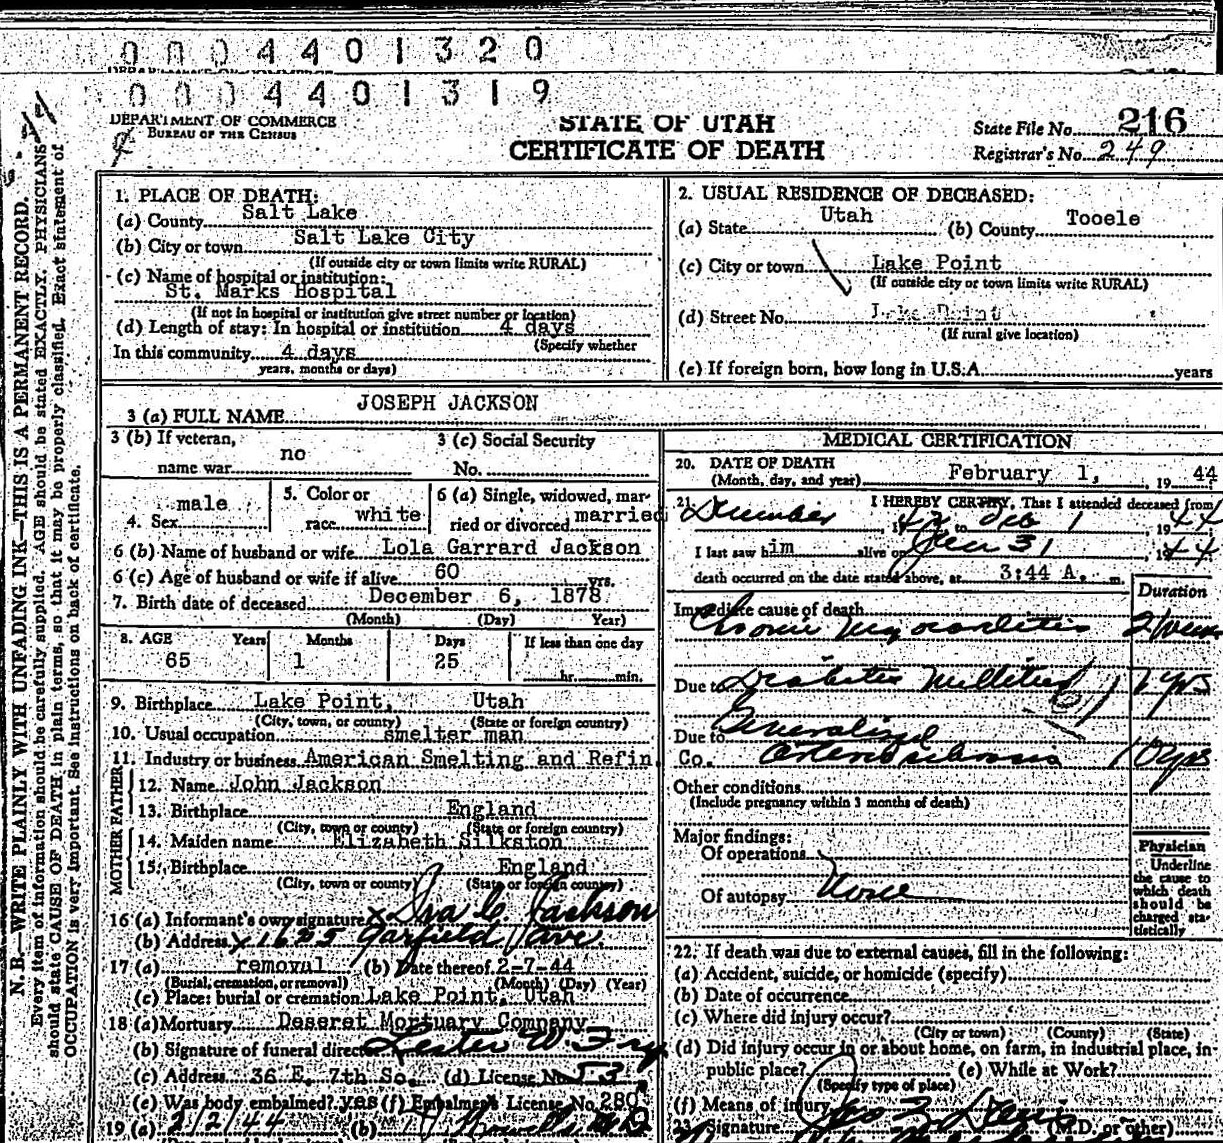 0004401320
0004401319
DEPARTMENT OF COMMERCE
BUREAU OF THE CENSUS
STATE OF UTAH
CERTIFICATE OF DEATH
State File No. 216
Registrar's No. 249
N. B.—WRITE PLAINLY WITH UNFADING INK—THIS IS A PERMANENT RECORD.
Every item of information should be carefully supplied. AGE should be stated EXACTLY. PHYSICIANS
should state CAUSE OF DEATH in plain terms, so that it may be properly classified. Exact statement of
OCCUPATION is very important. See instructions on back of certificate.
1. PLACE OF DEATH:
(a) County Salt Lake
(b) City or town Salt Lake City
(If outside city or town limits write RURAL)
(c) Name of hospital or institution:
St. Marks Hospital
(If not in hospital or institution give street number or location)
(d) Length of stay: In hospital or institution 4 days
(Specify whether
In this community 4 days
years, months or days)
2. USUAL RESIDENCE OF DECEASED:
(a) State Utah (b) County Tooele
(c) City or town Lake Point
(If outside city or town limits write RURAL)
(d) Street No. Lake Point
(If rural give location)
(e) If foreign born, how long in U.S.A. years
3 (a) FULL NAME JOSEPH JACKSON
3 (b) If veteran, name war no
3 (c) Social Security No.
4. Sex male
5. Color or race white
6 (a) Single, widowed, married or divorced married
6 (b) Name of husband or wife Lola Garrard Jackson
6 (c) Age of husband or wife if alive 60 yrs.
7. Birth date of deceased December 6, 1878
(Month) (Day) Year)
8. AGE Years Months Days If less than one day
65 1 25 hr. min.
9. Birthplace Lake Point, Utah
(City, town, or county) (State or foreign country)
10. Usual occupation smelter man
11. Industry or business American Smelting and Refin. Co.
FATHER
12. Name John Jackson
13. Birthplace England
(City, town or county) (State or foreign country)
MOTHER
14. Maiden name Elizabeth Silkston
15. Birthplace England
(City, town or county) (State or foreign country)
16 (a) Informant's own signature x Ira C. Jackson
(b) Address x 1625 Garfield Ave.
17 (a) removal (b) Date thereof 2-7-44
(Burial, cremation, or removal) (Month) (Day) (Year)
(c) Place: burial or cremation Lake Point, Utah
18 (a) Mortuary Deseret Mortuary Company
(b) Signature of funeral director Lester W. Fry
(c) Address 36 E. 7th So. (d) License No. 53
(e) Was body embalmed? yes (f) Embalmer License No. 280
19 (a) 2/2/44 (b)
MEDICAL CERTIFICATION
20. DATE OF DEATH
(Month, day, and year) February 1, 1944
21. I HEREBY CERTIFY, That I attended deceased from
December 1942 to Feb 1 1944
I last saw him alive on Jan 31 1944
death occurred on the date stated above, at 3:44 A. m.
Duration
Immediate cause of death
Chronic Myocarditis 2
Due to Diabetes Mellitus 61 7 yrs
Due to Generalized
Arteriosclerosis 10 yrs
Other conditions
(Include pregnancy within 3 months of death)
Major findings:
Of operations
Of autopsy None
Physician
Underline
the cause to
which death
should be
charged sta-
tistically
22. If death was due to external causes, fill in the following:
(a) Accident, suicide, or homicide (specify)
(b) Date of occurrence
(c) Where did injury occur?
(City or town) (County) (State)
(d) Did injury occur in or about home, on farm, in industrial place, in-
public place? (e) While at Work?
(Specify type of place)
(f) Means of injury
23. Signature (M.D. or other)